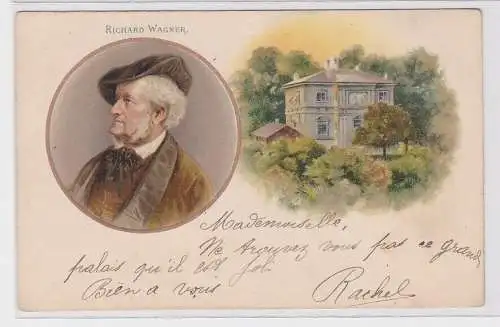 RICHARD WAGNER.
Mademoiselle,
Ne trouvez vous pas ce grand
palais qu'il est joli
Bien a vous Rachel